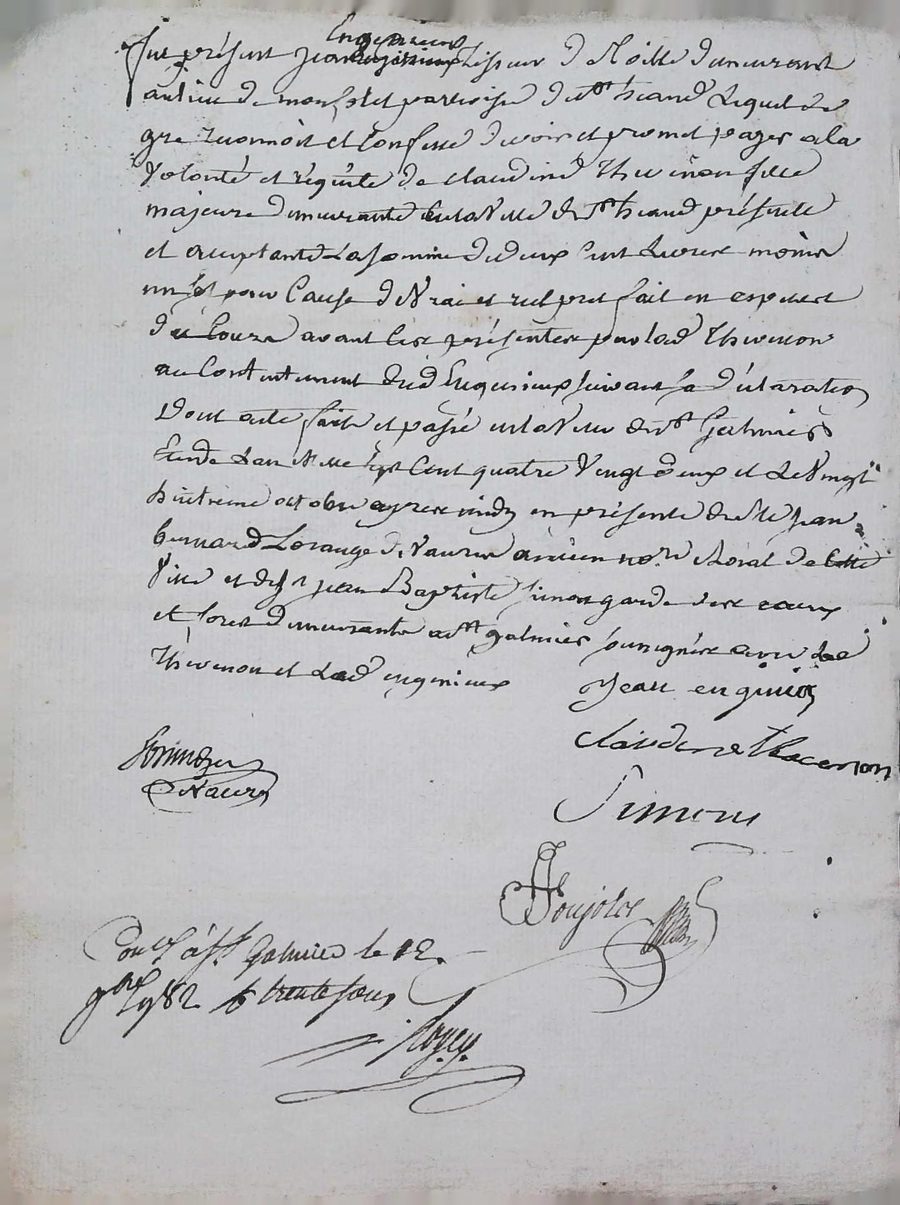 Engenieux
fut présent jean tisseur de toille demeurant
au lieu de parroise de st heand lequel de
gre reconnoit et confesse devoir et promet payer a la
volonté et réquête de claudine Thevenon fille
majeure demeurante en la ville de st heand présente
et acceptante la somme de deux cent livres moins
un pour cause de vrai et réel pret fait en especes
de cours avant les présentes par lad Thevenon
au contentement dud Engenieux suivant sa déclaration
Dont acte fait et passé en la ville de st Galmier
Etude l'an mille sept cent quatre vingt deux et le vingt
huitieme octobre apres midy en présence de Me jean
bernard de Vaures ancien nore Roial de cette
ville et de sr jean Baptiste simon garde des eaux
et foret demeurante a st galmier soussignés avec la
Thevenon et led engenieux
jean enginieu
claudine thevenon
Simon
Conlé à st Galmier le 12
9bre 1782 trente sous